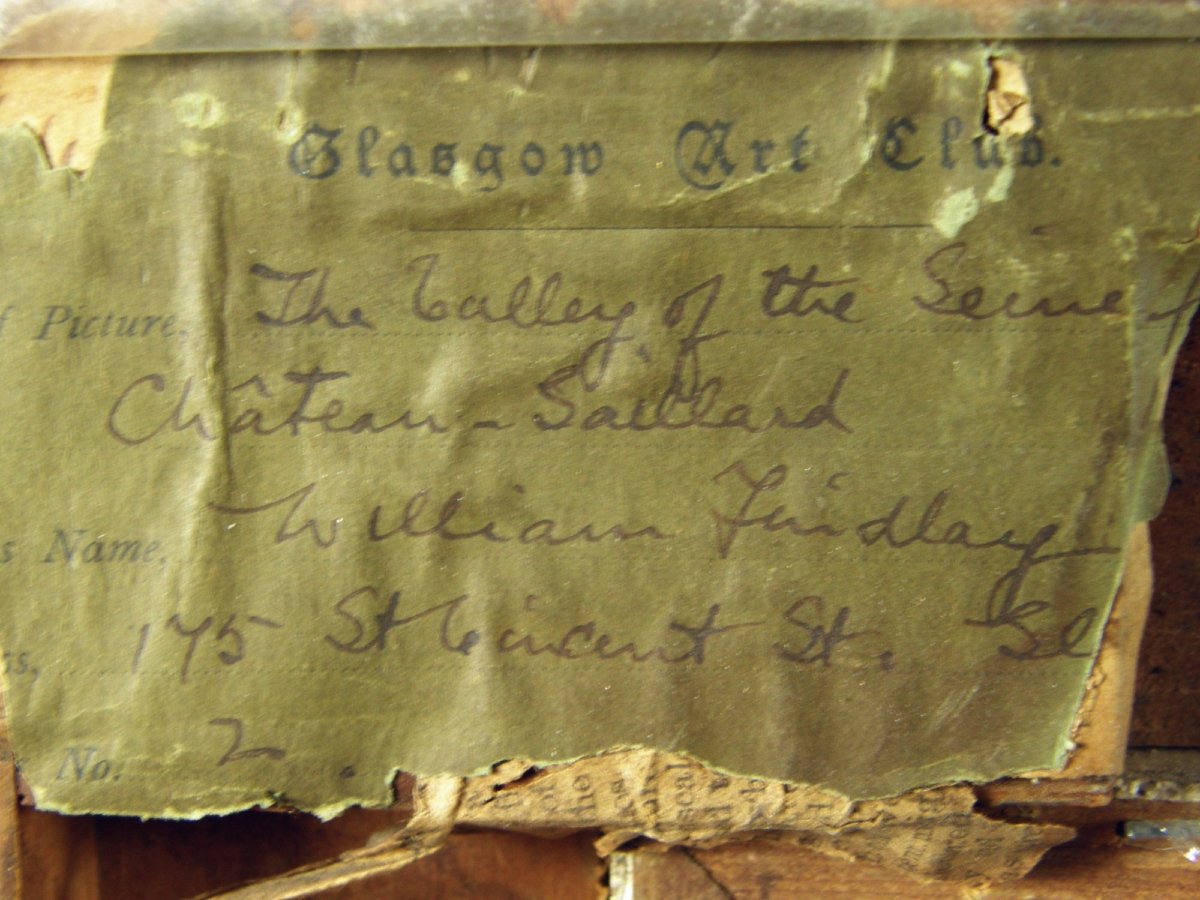 Glasgow Art Club.
f Picture, The Valley of the Seine f
Château-Gaillard
s Name, William Findlay
ss, 175 St Vincent St. Gl
No. 2